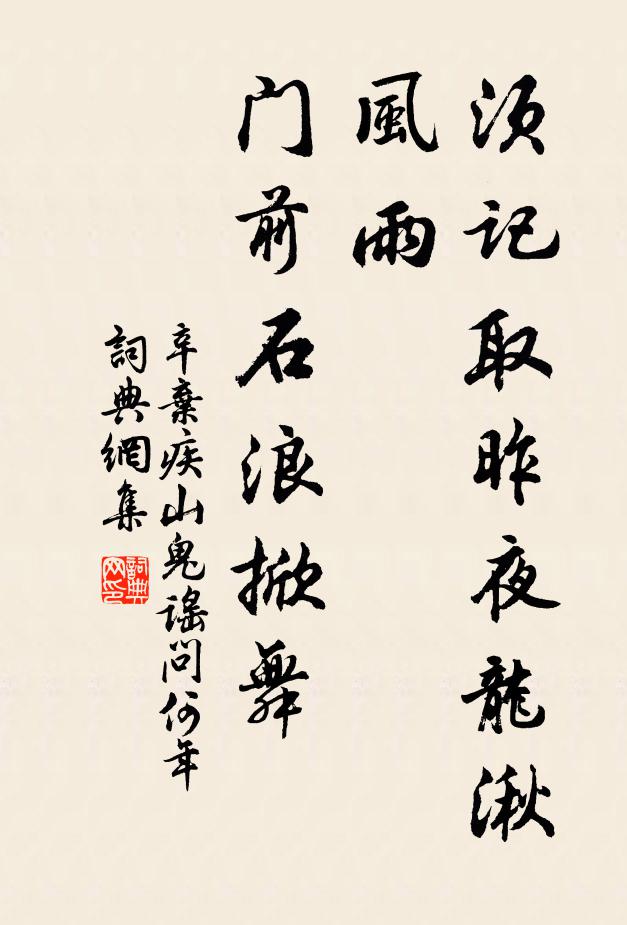 须记取昨夜龍湫
風雨
门前石浪掀舞
辛棄疾山鬼謠問何年
詞典網集
詞典网印